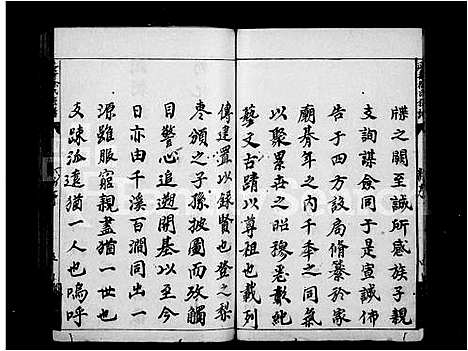 牒之關至誠所感族子親
支詢謀僉同于是宣誠佈
告于四方設局脩纂於家
廟朞年之內千季之同氣
以聚累世之昭穆悉敷純
藝文古蹟以尊祖也載列
傳建置以錄賢也登之梨
棗頒之子孫披圖而攷觸
目警心追遡開基以至今
日亦由千溪百澗同出一
源雖服窮親盡猶一世也
支疎派遠猶一人也嗚呼